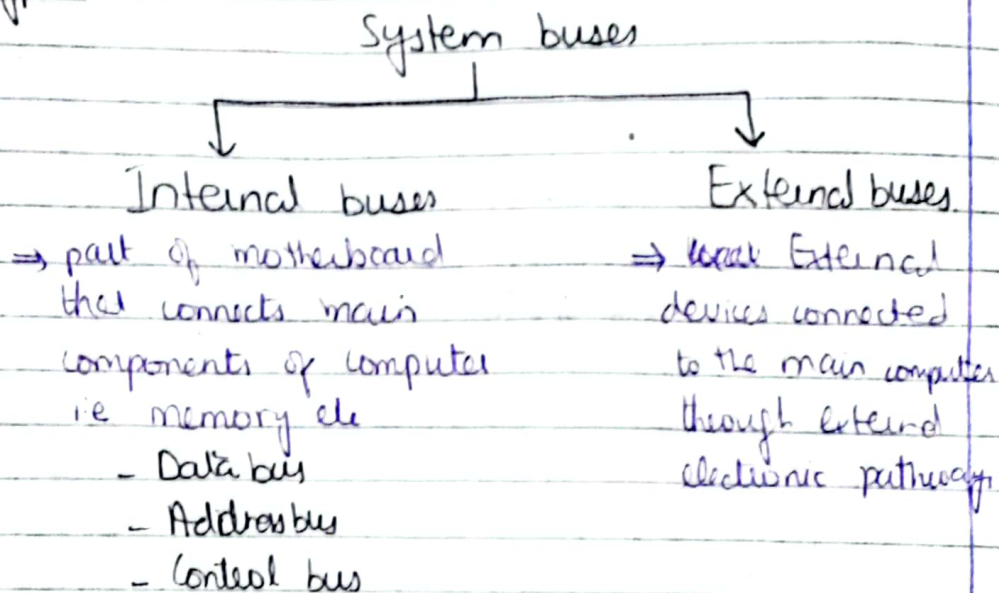 System buses
Internal buses
⇒ part of motherboard
that connects main
components of computer
i.e memory etc
- Data bus
- Address bus
- Control bus
External buses
⇒ External
devices connected
to the main computer
through external
electronic pathway.